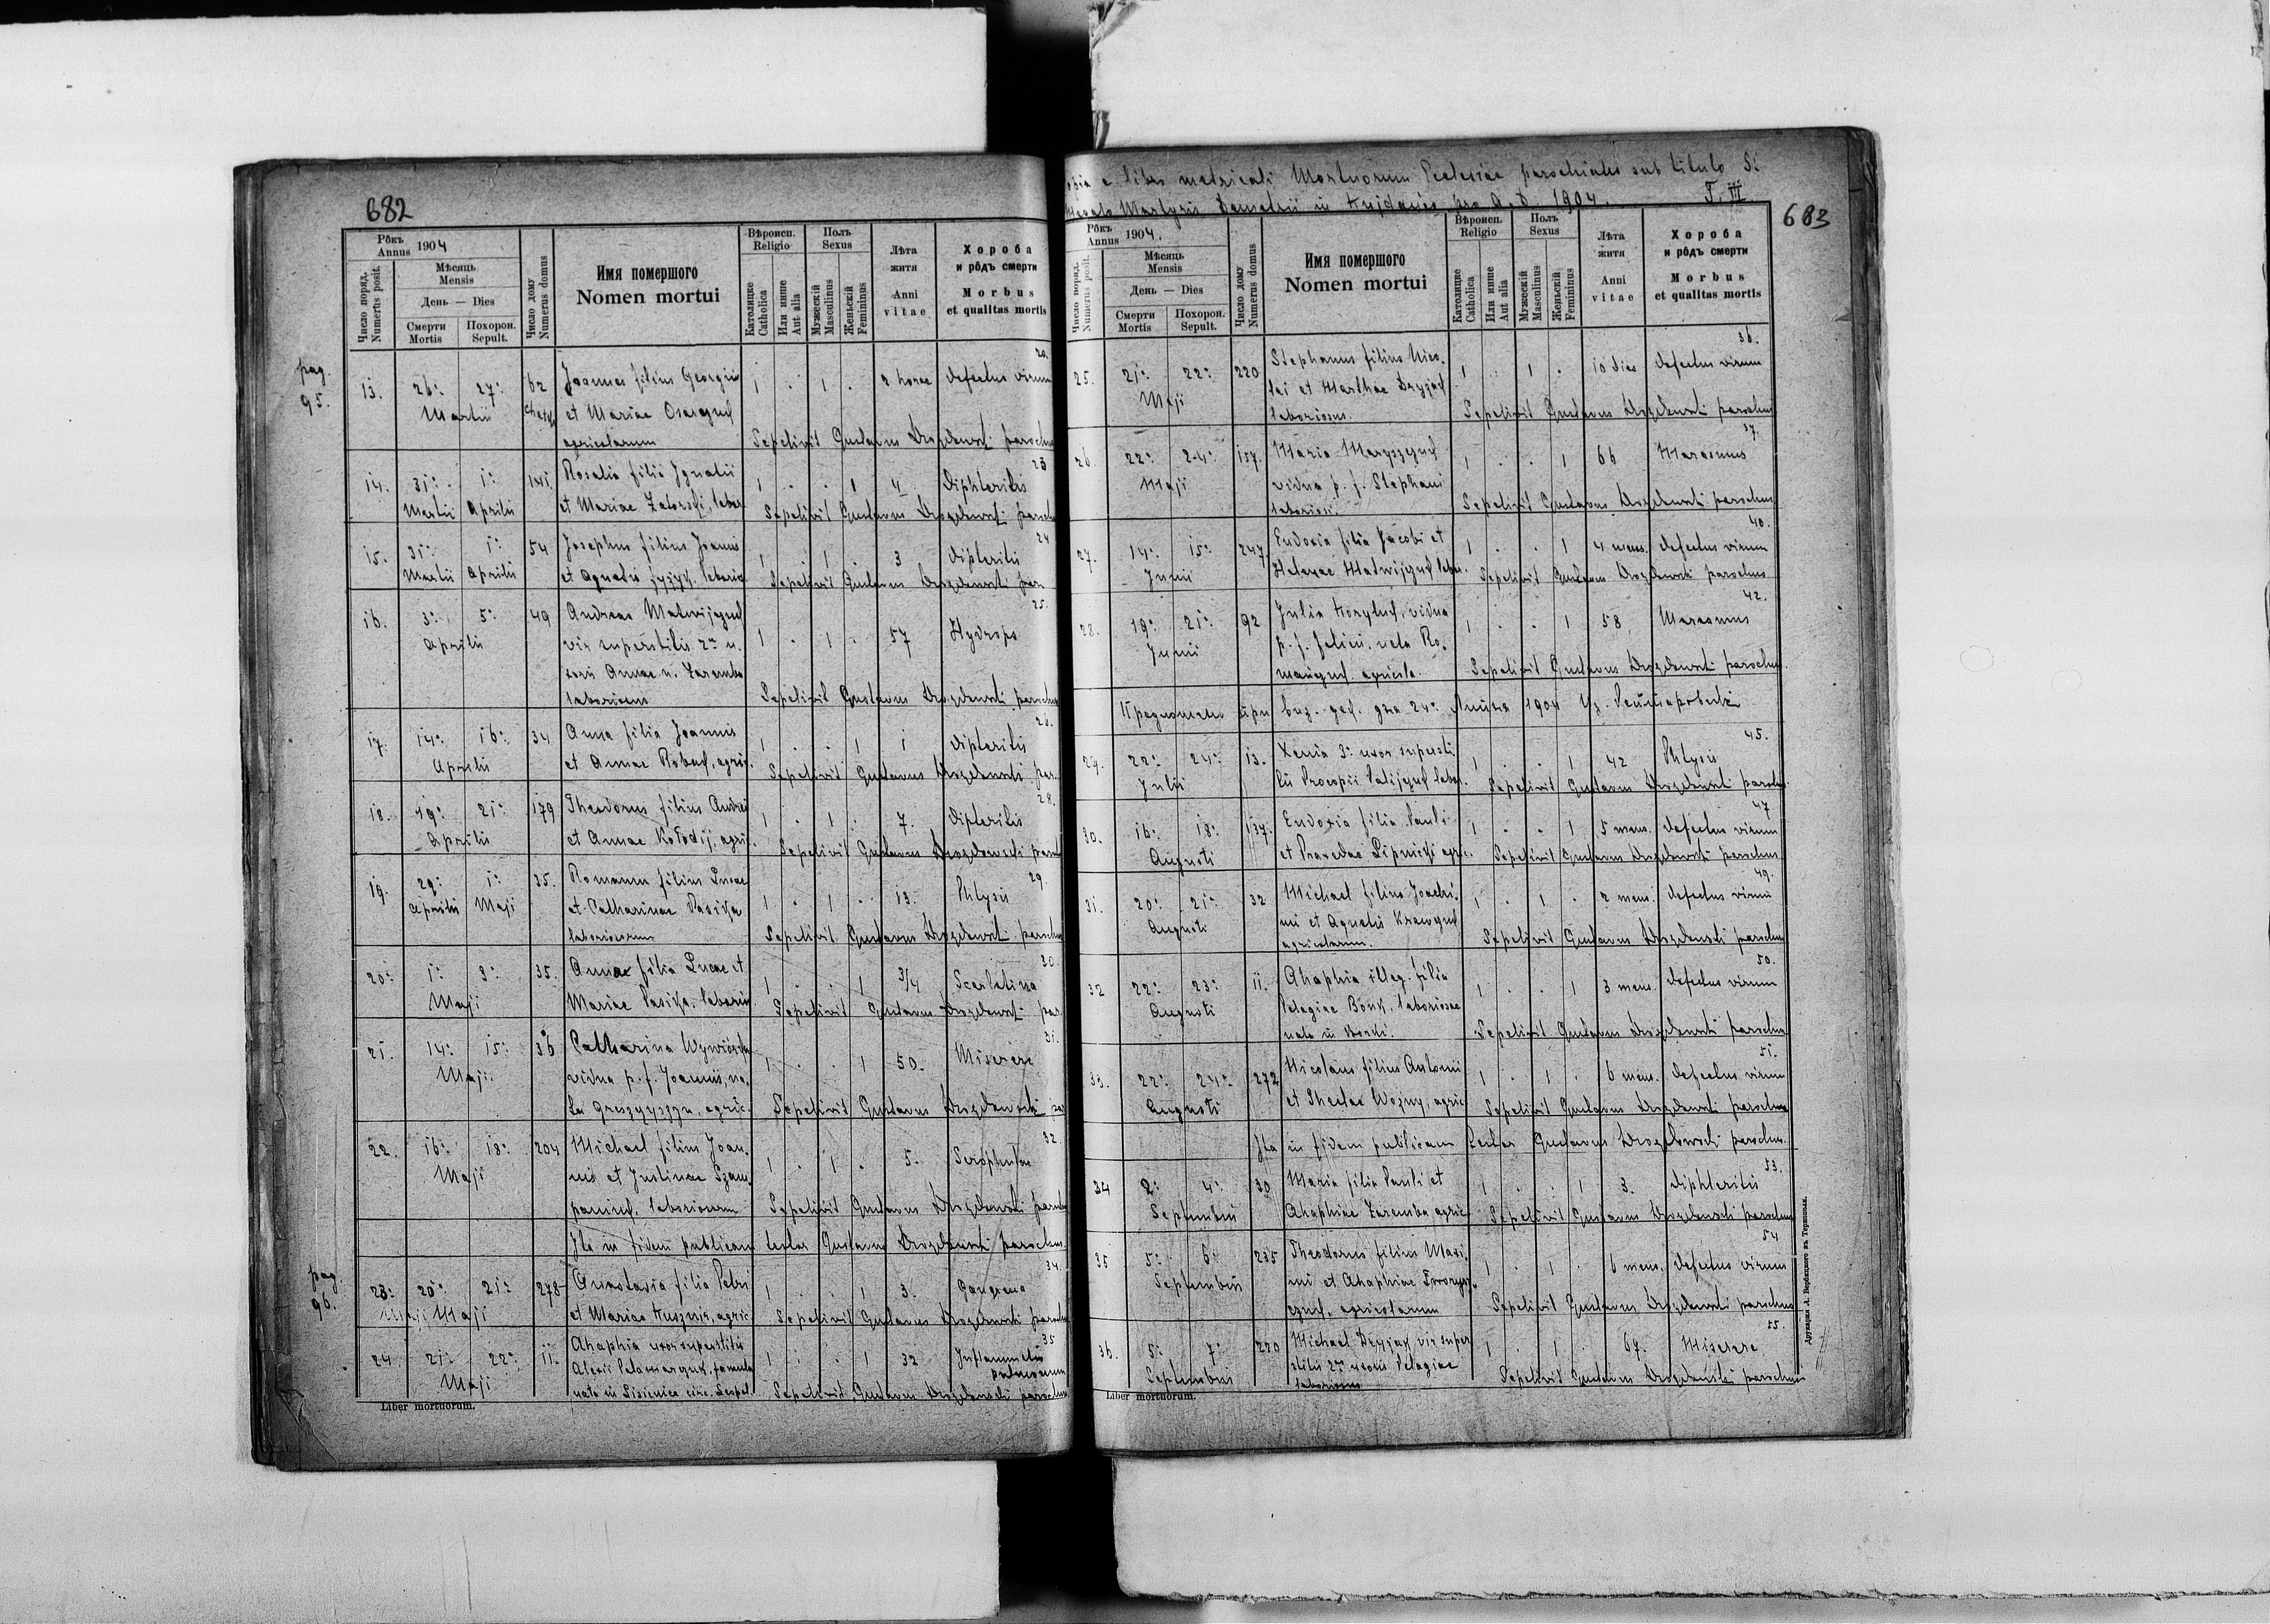 682
Рôкъ Annus 1904
Число поряд. Numerus posit.
Мѣсяць Mensis
День — Dies
Смерти Mortis
Похорон. Sepult.
Число дому Numerus domus
Имя помершого
Nomen mortui
Вѣроисп. Religio
Католицке Catholica
Или инше Aut alia
Полъ Sexus
Мужескій Masculinus
Женьскій Femininus
Лѣта житя
Anni vitae
Хороба и рôдъ смерти
Morbus et qualitas mortis
pag. 95.
20.
13. 26. 27. 62 Joannes filius Georgii 1 . 1 . 2 horae defectus virium
Martii et Mariae
agricolarum Sepelivit Gustavus Drozdowski parochus
23
14. 31. 1. 141. Rosalia filia Ignatii 1 . . 1 4 Diphteritis
Martii Aprilis et Mariae Zatorski, labor. Sepelivit Gustavus Drozdowski paroch
24
15. 31. 1. 54 Josephus filius Joannis 1 . 1 . 3 dipteritis
Martii Aprilis et Agnetis laborio. Sepelivit Gustavus Drozdowski par.
25.
16. 3. 5. 49 Andreas Matwijczuk 1 . 1 . 57 Hydrops
Aprilis vir superstitis 2ae u.
xoris Annae n. Zaremba
laboriosus Sepelivit Gustavus Drozdowski parochus
26.
17. 14. 16. 34 Anna filia Joannis 1 . . 1 1 dipteritis
Aprilis et Annae agric. Sepelivit Gustavus Drozdowski par.
28.
18. 19. 21. 179 Theodorus filius Andrei 1 . 1 . 7. dipteritis
Aprilis et Annae Kołodij, agric. Sepelivit Gustavus Drozdowski paroch
29.
19. 29. 1. 35. Romanus filius Lucae 1 . 1 . 13. Phtysis
Aprilis Maji et Catharinae Pasika
laboriosorum Sepelivit Gustavus Drozdowski parochus
30.
20. 1. 3. 35. Anna filia Lucae et 1 . . 1 3/4 Scarlatina
Maji Mariae Pasika, laborio. Sepelivit Gustavus Drozdowski par.
31.
21. 14. 15. 36 Catharina 1 . . 1 50. Miserere
Maji vidua p. f. Joannis, na.
ta agric. Sepelivit Gustavus Drozdowski par
32.
22. 16. 18. 204 Michael filius Joan. 1 . 1 . 5. Scrophulae
Maji nis et Justinae
laboriosorum Sepelivit Gustavus Drozdowski paroch
Ita in fidem publicam testor Gustavus Drozdowski parochus.
pag. 96.
34.
23. 20. 21. 278 Anastasia filia Petri 1 . . 1 3. Gangrena
Maji et Mariae agric. Sepelivit Gustavus Drozdowski parochus
35
24. 21. 22. 11. Ahaphia uxor superstitis 1 . . 1 32 Inflammatio
Maji Alexii Palamarczuk, famula pulmonum
nata in Lisienice circ. Sepelivit Gustavus Drozdowski parochus
Liber mortuorum.
Copia e libro metricali Mortuorum Ecclesiae parochialis sub titulo St.
Megalo Martyris Demetrii in pro A. D. 1904. T. III
683
Рôкъ Annus 1904.
Число поряд. Numerus posit.
Мѣсяць Mensis
День — Dies
Смерти Mortis
Похорон. Sepult.
Число дому Numerus domus
Имя помершого
Nomen mortui
Вѣроисп. Religio
Католицке Catholica
Или инше Aut alia
Полъ Sexus
Мужескій Masculinus
Женьскій Femininus
Лѣта житя
Anni vitae
Хороба и рôдъ смерти
Morbus et qualitas mortis
36.
25. 21. 22. 220 Stephanus filius Nico. 1 . 1 . 10 dies defectus virium
Maji lai et Marthae Dryjak
laboriosus. Sepelivit Gustavus Drozdowski parochus
37.
26. 22. 24. 157. Maria 1 . . 1 66 Marasmus
Maji vidua p. f. Stephani
laboriosi. Sepelivit Gustavus Drozdowski parochus
40.
27. 14. 15. 247 Eudoxia filia Jacobi et 1 . . 1 4 mens. defectus virium
Junii Helenae Matwijczuk labor. Sepelivit Gustavus Drozdowski parochus
42.
28. 19. 21. 92 Julia vidua 1 . . 1 58 Marasmus
Junii p. f. Felicii, nata Ro.
agricola. Sepelivit Gustavus Drozdowski parochus.
при виз. дек. дня 24. 1904
45.
29. 22. 24. 13. Xenia 3. uxor supersti. 1 . . 1 42 Phtysis
Julii tis Procopii Palijczuk labor. Sepelivit Gustavus Drozdowski parochus.
47
30. 16. 18. 137. Eudoxia filia Pauli 1 . . 1 5 mens. defectus virium
Augusti et Praxedae Lipnicki agric. Sepelivit Gustavus Drozdowski parochus
49.
31. 20. 21. 32 Michael filius Joachi. 1 . 1 . 2 mens. defectus virium
Augusti mi et Agnetis Krawczuk
agricolarum. Sepelivit Gustavus Drozdowski parochus
50.
32 22. 23. 11. Ahaphia illeg. filia 1 . . 1 3 mens. defectus virium
Augusti Pelagiae laboriosae
nata in Sepelivit Gustavus Drozdowski parochus
51.
33. 22. 24. 272 Nicolaus filius Antonii 1 . 1 . 6 mens. defectus virium
Augusti et Theclae Wozny, agric. Sepelivit Gustavus Drozdowski parochus
Ita in fidem publicam testor Gustavus Drozdowski parochus.
53.
34 2. 4. 30 Maria filia Pauli et 1 . . 1 3. diphteritis
Septembris Ahaphiae Zaremba agric. Sepelivit Gustavus Drozdowski parochus
54
35 5. 6. 235 Theodorus filius Maxi. 1 . 1 . 6 mens. defectus virium
Septembris mi et Ahaphiae
agricolarum Sepelivit Gustavus Drozdowski parochus
55.
36. 5. 7. 220 Michael Dryjak vir super 1 . 1 . 67. Miserere
Septembris stitis 2ae uxoris Pelagiae
laboriosus Sepelivit Gustavus Drozdowski parochus
Liber mortuorum.
Друкарня Л. Вербецкого въ Тернополи.